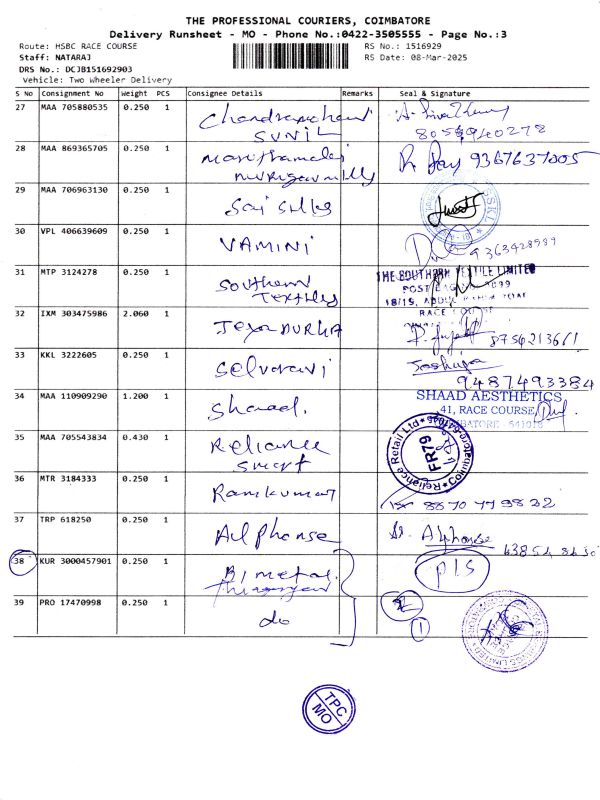 THE PROFESSIONAL COURIERS, COIMBATORE
Delivery Runsheet - MO - Phone No.:0422-3505555 - Page No.:3
Route: HSBC RACE COURSE
RS No.: 1516929
Staff: NATARAJ
RS Date: 08-Mar-2025
DRS No.: DCJB151692903
Vehicle: Two Wheeler Delivery
S No Consignment No Weight PCS Consignee Details Remarks Seal & Signature
27 MAA 705880535 0.250 1
SUNIL
8056940278
28 MAA 869365705 0.250 1
9367637005
29 MAA 706963130 0.250 1 Sai Silks
30 VPL 406639609 0.250 1 VAMINI
9363428989
31 MTP 3124278 0.250 1 Southern
Textiles
THE SOUTHERN TEXTILE LIMITED
RACE COURSE
32 IXM 303475986 2.060 1
8754213661
33 KKL 3222605 0.250 1 Selvarani
9487493384
34 MAA 110909290 1.200 1 Shaad.
SHAAD AESTHETICS
41, RACE COURSE,
35 MAA 705543834 0.430 1 Reliance
smart
Reliance Retail Ltd
FR79
36 MTR 3184333 0.250 1 Ramkumar
8870779832
37 TRP 618250 0.250 1 Alphonse
Alphonse
38 KUR 3000457901 0.250 1 Bimetal
PLS
39 PRO 17470998 0.250 1 do
2
1
TPC
MO